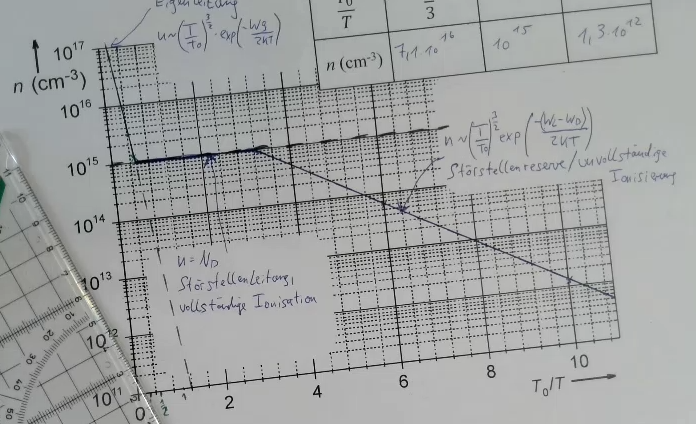 Eigenleitung
n~(T/T₀)^3/2 · exp(-Wg/2kT)
T₀/T
3
n (cm⁻³)
7,1·10¹⁶
10¹⁵
1,3·10¹²
n (cm⁻³)
10¹⁷
10¹⁶
10¹⁵
10¹⁴
10¹³
10¹²
10¹¹
n ~ (T/T₀)^3/2 exp(-(WL-WD)/2kT)
Störstellenreserve/unvollständige
Ionisierung
n = ND
Störstellenleitung,
vollständige Ionisation
0
1/2
1
2
4
6
8
10
T₀/T